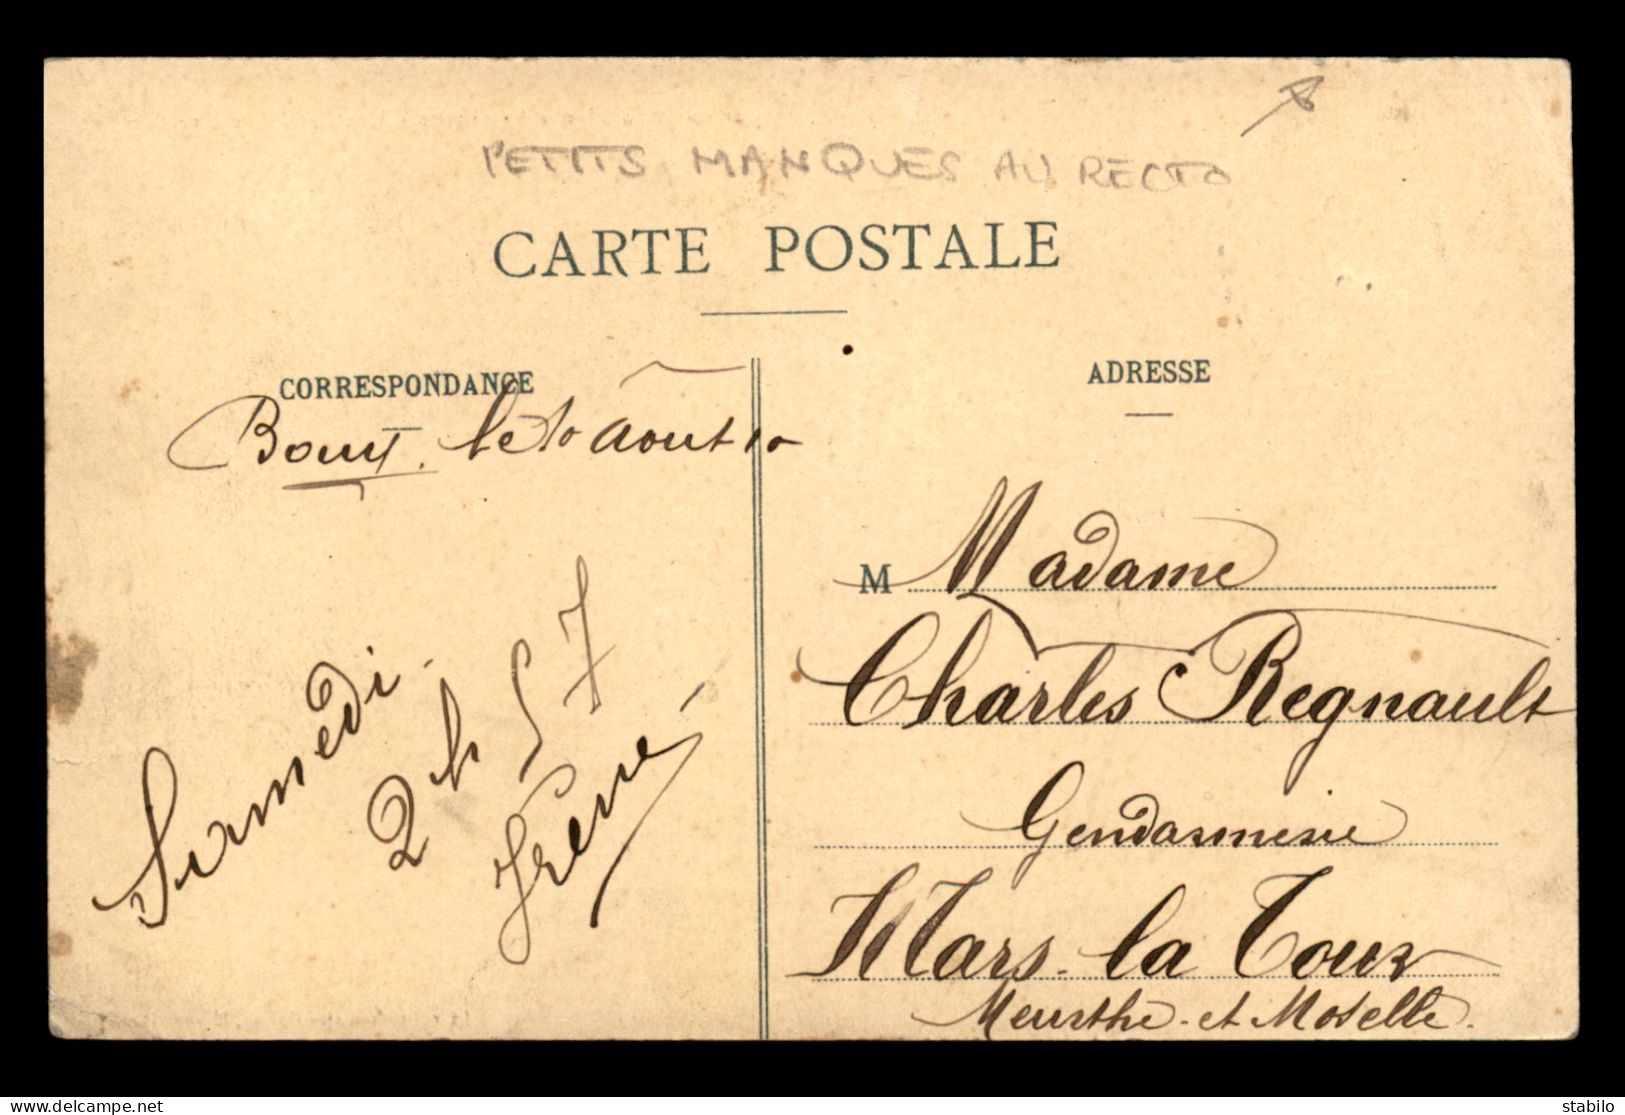 PETITS MANQUES AU RECTO
CARTE POSTALE
CORRESPONDANCE
Bouy, le 10 Août 10
Samedi.
2h 57
ADRESSE
M Madame
Charles Regnault
Gendarmerie
Mars-la Tour
Meurthe-et Moselle.
delcampe.net
stabilo